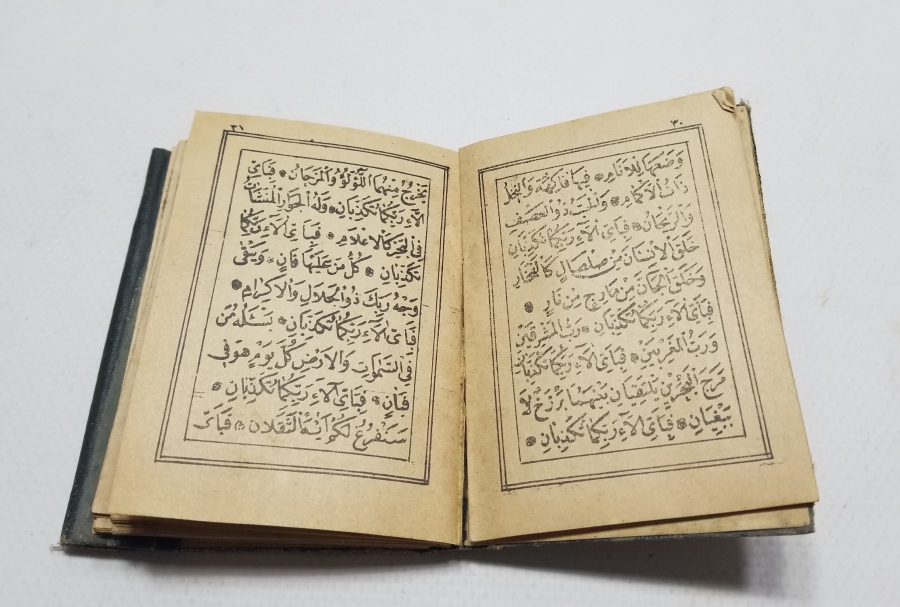 ٣٠
وَضَعَهَا لِلْاَنَامِ * فِيهَا فَاكِهَةٌ وَالنَّخْلُ
ذَاتُ الْاَكْمَامِ * وَالْحَبُّ ذُو الْعَصْفِ
وَالرَّيْحَانُ * فَبِاَىِّ اٰلَاءِ رَبِّكُمَا تُكَذِّبَانِ
خَلَقَ الْاِنْسَانَ مِنْ صَلْصَالٍ كَالْفَخَّارِ
وَخَلَقَ الْجَانَّ مِنْ مَارِجٍ مِنْ نَارٍ *
فَبِاَىِّ اٰلَاءِ رَبِّكُمَا تُكَذِّبَانِ * رَبُّ الْمَشْرِقَيْنِ
وَرَبُّ الْمَغْرِبَيْنِ * فَبِاَىِّ اٰلَاءِ رَبِّكُمَا تُكَذِّبَانِ
مَرَجَ الْبَحْرَيْنِ يَلْتَقِيَانِ بَيْنَهُمَا بَرْزَخٌ لَا
يَبْغِيَانِ * فَبِاَىِّ اٰلَاءِ رَبِّكُمَا تُكَذِّبَانِ *
٣١
يَخْرُجُ مِنْهُمَا اللُّؤْلُؤُ وَالْمَرْجَانُ * فَبِاَىِّ
اٰلَاءِ رَبِّكُمَا تُكَذِّبَانِ * وَلَهُ الْجَوَارِ الْمُنْشَاٰتُ
فِى الْبَحْرِ كَالْاَعْلَامِ * فَبِاَىِّ اٰلَاءِ رَبِّكُمَا
تُكَذِّبَانِ * كُلُّ مَنْ عَلَيْهَا فَانٍ * وَيَبْقٰى
وَجْهُ رَبِّكَ ذُو الْجَلَالِ وَالْاِكْرَامِ *
فَبِاَىِّ اٰلَاءِ رَبِّكُمَا تُكَذِّبَانِ * يَسْئَلُهُ مَنْ
فِى السَّمٰوَاتِ وَالْاَرْضِ كُلَّ يَوْمٍ هُوَ فِى
شَاْنٍ * فَبِاَىِّ اٰلَاءِ رَبِّكُمَا تُكَذِّبَانِ *
سَنَفْرُغُ لَكُمْ اَيُّهَ الثَّقَلَانِ * فَبِاَىِّ